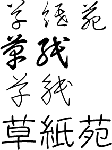 草紙苑
草紙
草紙
草紙苑